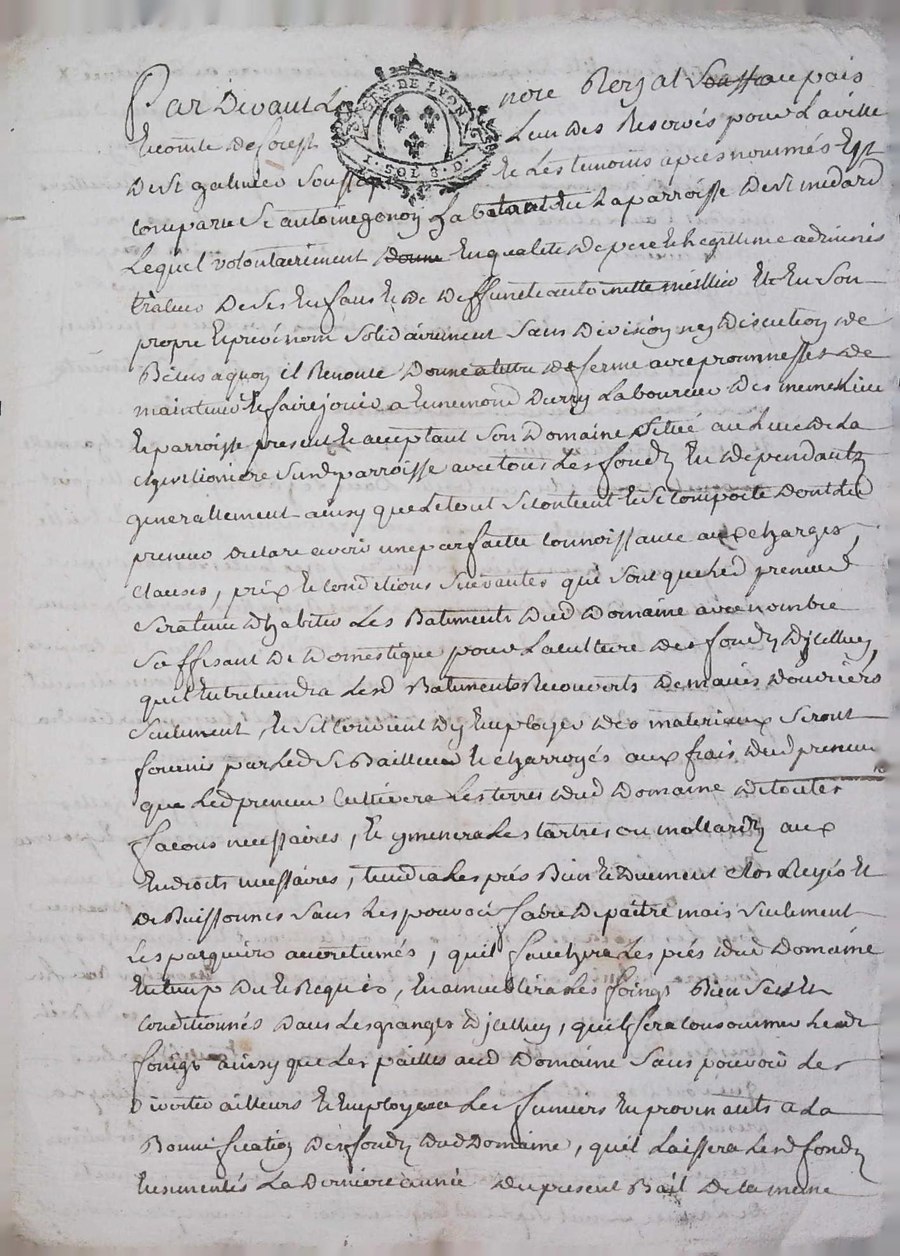 Par Devant Le nore Royal Soussa au pais
Et comte de forest Lun des Reservés pour La ville
De St galmier Souss Et Les temoins apres nommés Est
comparu Sr antoine Laboureur La parroisse De St medard
Lequel volontairement Donne En qualite De pere Et Legittime adminis
trateur De Ses Enfans Et De Deffunte antoinette meillier Et En Son
propre Et privé nom Solidairement Sans Division ny Discution De
Biens a quoy il Renonce Donne a titre De ferme avec promesses De
maintenir Et faire jouir a Ennemond Laboureur Des meme Lieu
Et parroisse present Et acceptant Son Domaine Situé au Lieu De La
Susd parroisse avec tous Les fondz En Dependantz
generallement ainsy que Le tout Se Contient Et Se Comporte Dont Led
preneur Declare avoir une parfaitte Connoissance aux Charges,
Clauses, prix Et Conditions Suivantes qui Sont que Led preneur
Sera tenu D'habiter Les Batiments Dud Domaine avec nombre
Suffisant De Domestique pour La Culture Des fondz D'jcelluy,
quil Entretiendra Lesd Batiments Recouverts De mains D'ouvriers
Seulement, Et Sil Convient D'y Employer Des materiaux Seront
fournis par Led Sr Bailleur Et Charroyés aux frais Dud preneur
que Led preneur Cultivera Les terres Dud Domaine De toutes
facons necessaires, Et y menera Les tertres ou mollardz aux
Endroits necessaires, tiendra Les prés Bien Et Duement Clos Et
De Buissonnés Sans Les pouvoir faire Depaitre mais Seulement
Les accoutumés, quil fauchera Les prés Dud Domaine
En temp Du Et Requis, En Les foings Bien Secs Et
Conditionnés Dans Les granges D'jcelluy, quil fera Consommer Lesd
foings ainsy que Les pailles aud Domaine Sans pouvoir Les
Divertir ailleurs Et Employera Les fumiers En provinants a La
Bonnification Des fondz Dud Domaine, quil Laissera Lesd fondz
Ensemencés La Derniere année Du present Bail De La meme